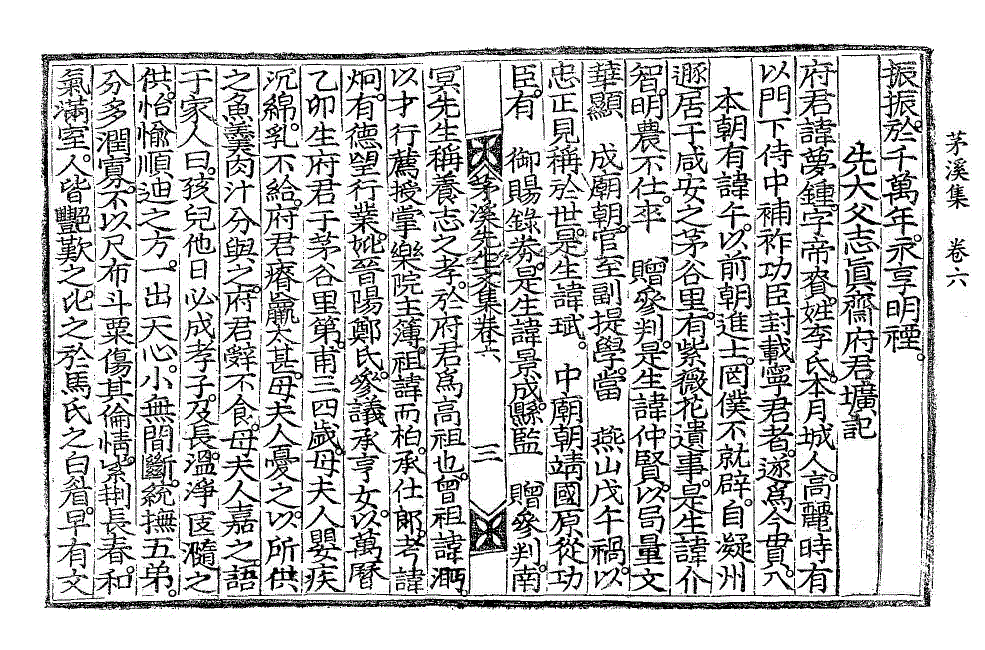 茅溪集　卷六
振振於千萬年永享明禋
先大父志眞齋府君壙記
府君諱夢鍾字帝賚姓李氏本月城人高麗時有
以門下侍中補祚功臣封載寧君者遂爲今貫入
本朝有諱午以前朝進士罔僕不就辟自凝州
遯居于咸安之茅谷里有紫薇花遺事是生諱介
智明農不仕卒　贈參判是生諱仲賢以局量文
華顯　成廟朝官至副提學當　燕山戊午禍以
忠正見稱於世是生諱珷　中廟朝靖國原從功
臣有　御賜錄券是生諱景成縣監　贈參判南
茅溪先生文集卷六　三
冥先生稱養志之孝於府君爲高祖也曾祖諱沔
以才行薦授掌樂院主簿祖諱而柏承仕郞考諱
炯有德望行業妣晉陽鄭氏參議承亨女以萬曆
乙卯生府君于茅谷里第甫三四歲母夫人嬰疾
沉綿乳不給府君瘠羸太甚母夫人憂之以所供
之魚羹肉汁分與之府君辭不食母夫人嘉之語
于家人曰孩兒他日必成孝子及長溫凊匜瀡之
供怡愉順迪之方一出天心小無間斷統撫五弟
分多潤寡不以尺布斗粟傷其倫情紫荆長春和
氣滿室人皆艷歎之比之於馬氏之白眉早有文